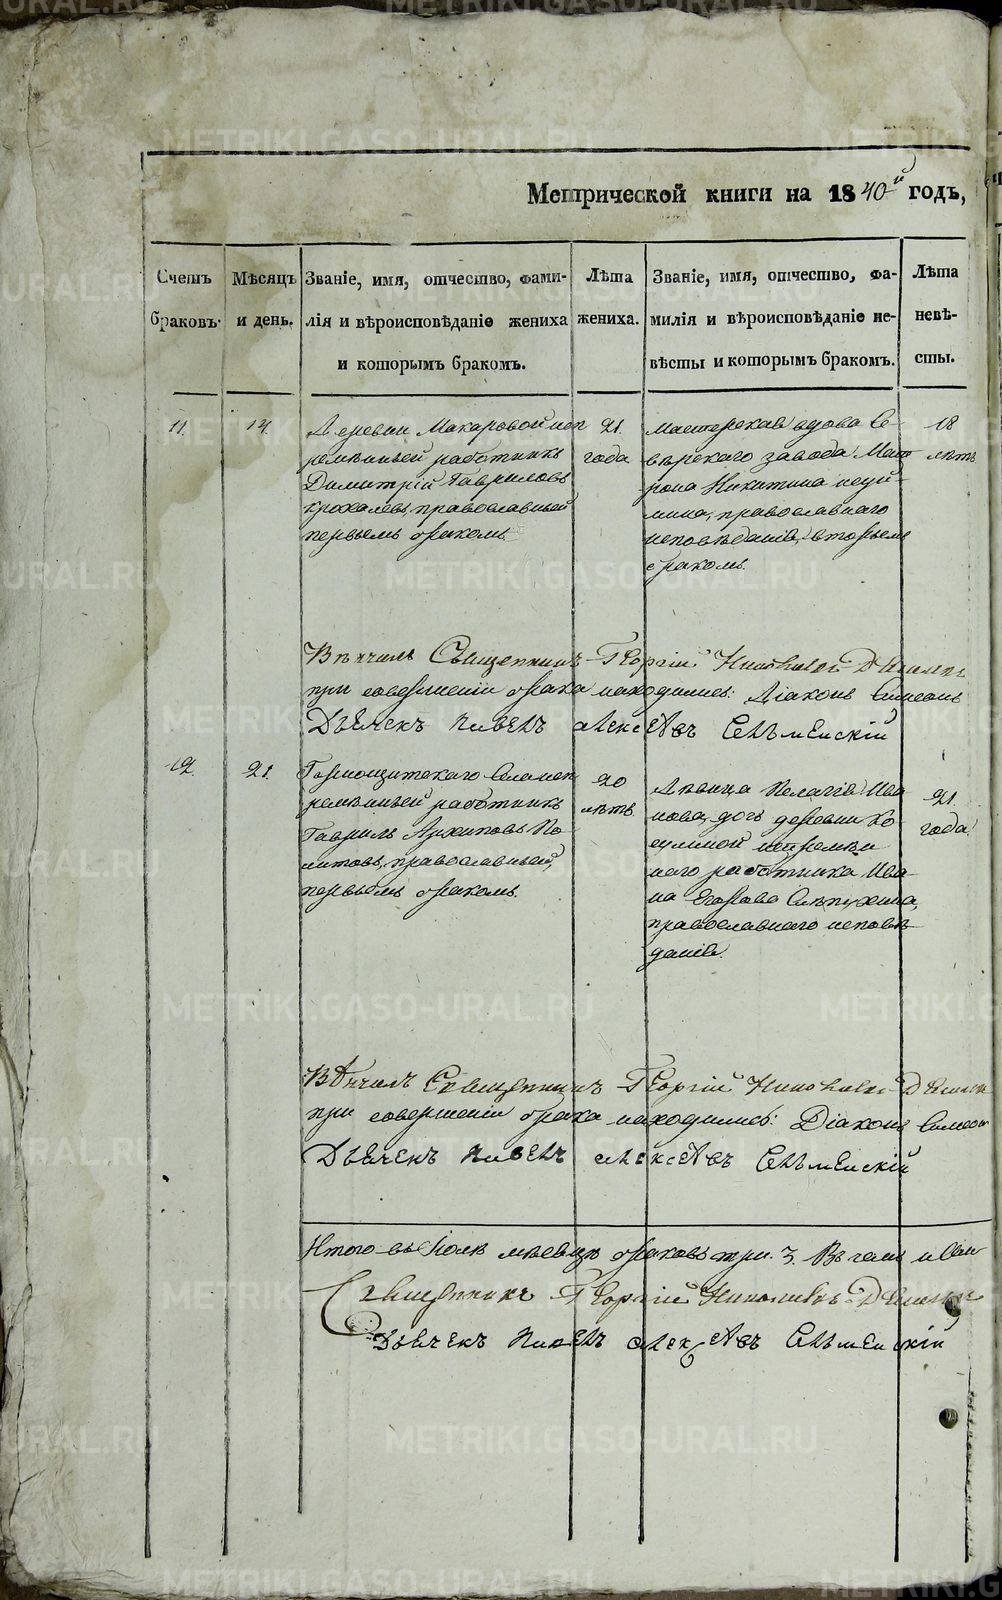 Метрической книги на 1840й годъ,
Счетъ
браковъ.
Мѣсяцъ
и день.
Званіе, имя, отчество, фами-
лія и вѣроисповѣданіе жениха
и которымъ бракомъ.
Лѣта
жениха.
Званіе, имя, отчество, фа-
милія и вѣроисповѣданіе не-
вѣсты и которымъ бракомъ.
Лѣта
невѣ-
сты.
11.
14.
Деревни Макаровой неп
ремѣнный работникъ
Димитрій Гавриловъ
крохалевъ, православный
первымъ бракомъ.
21.
года
Мастерская вдова Се-
верскаго завода Мат
рона Никитина
православнаго
исповѣданія, вторымъ
бракомъ.
18
лѣтъ
Вѣнчалъ Священникъ Георгій
при совершеніи брака находились: Діаконъ Симеонъ
Дьячекъ Павелъ Алексѣевъ
12.
21.
Горнощитскаго Села неп
ремѣнный работникъ
Гаврилъ Архиповъ
православный,
первымъ бракомъ.
20
лѣтъ
Дѣвица Пелагія Ива
нова, дочь деревни Ко
сулиной непремѣн
наго работника Ива
на Егорова
православнаго исповѣ-
данія.
21.
года
Вѣнчалъ Священникъ Георгій
при совершеніи брака находились: Діаконъ Симеон
Дьячекъ Павелъ Алексѣевъ
Итого въ Іюлѣ месяцѣ браковъ три. 3. Въ чемъ и
Священникъ Георгій
Дьячекъ Павелъ Алексѣевъ
METRIKI.GASO-URAL.RU